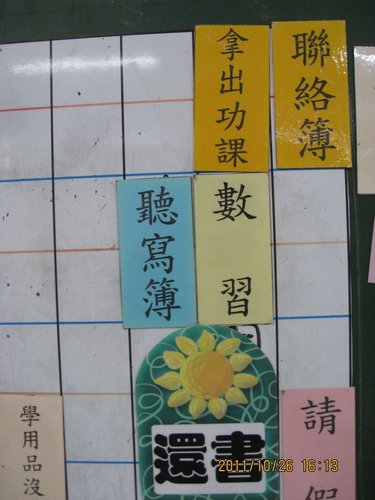 聯絡簿
拿出功課
數習
聽寫簿
還書
請假
學用品沒
2011/10/26 16:13